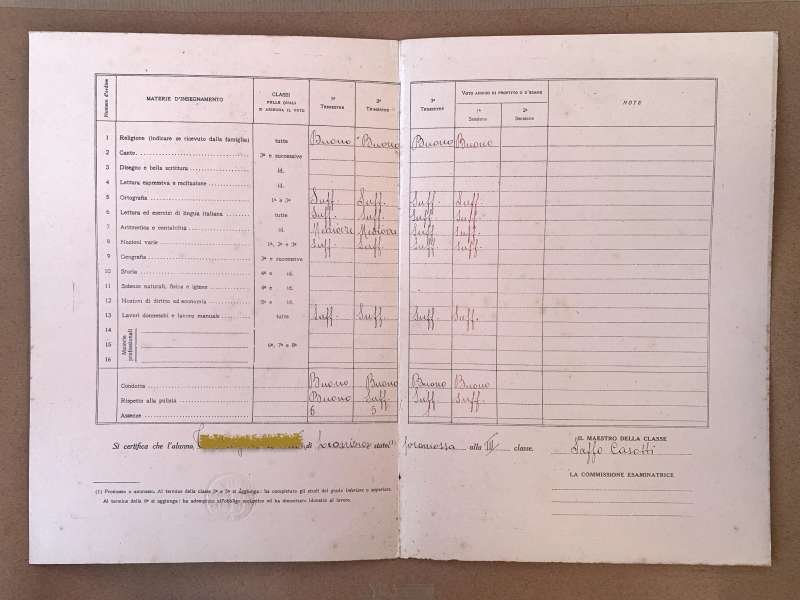 Numero d'ordine MATERIE D'INSEGNAMENTO CLASSI NELLE QUALI SI ASSEGNA IL VOTO 1º TRIMESTRE 2º TRIMESTRE 3º TRIMESTRE VOTO ANNUO DI PROFITTO O D'ESAME 1ª Sessione 2ª Sessione NOTE
1 Religione (indicare se ricevuto dalla famiglia) tutte Buono Buono Buono Buono
2 Canto 3ª e successive
3 Disegno e bella scrittura id.
4 Lettura espressiva e recitazione id.
5 Ortografia 1ª e 3ª Suff. Suff. Suff. Suff.
6 Lettura ed esercizi di lingua italiana tutte Suff. Suff. Suff Suff.
7 Aritmetica e contabilità id. Mediocre Mediocre Suff. Suff.
8 Nozioni varie 1ª, 2ª e 3ª Suff Suff Suff Suff.
9 Geografia 3ª e successive
10 Storia 4ª e id.
11 Scienze naturali, fisica e igiene 4ª e id.
12 Nozioni di diritto ed economia 5ª e id.
13 Lavori donneschi e lavoro manuale tutte Suff. Suff. Suff Suff.
14
15 Materie professionali 6ª, 7ª e 8ª
16
Condotta Buono Buono Buono Buono
Rispetto alla pulizia Buono Suff Suff Suff.
Assenze 6 5
Si certifica che l'alunno di stato (1) promossa alla III classe.
IL MAESTRO DELLA CLASSE
Saffo Casotti
LA COMMISSIONE ESAMINATRICE
(1) Promosso o ammesso. Al termine della classe 3ª e 5ª si aggiunga: ha completato gli studi del grado inferiore o superiore.
Al termine della 8ª si aggiunga: ha adempiuto all'obbligo scolastico ed ha dimostrato idoneità al lavoro.